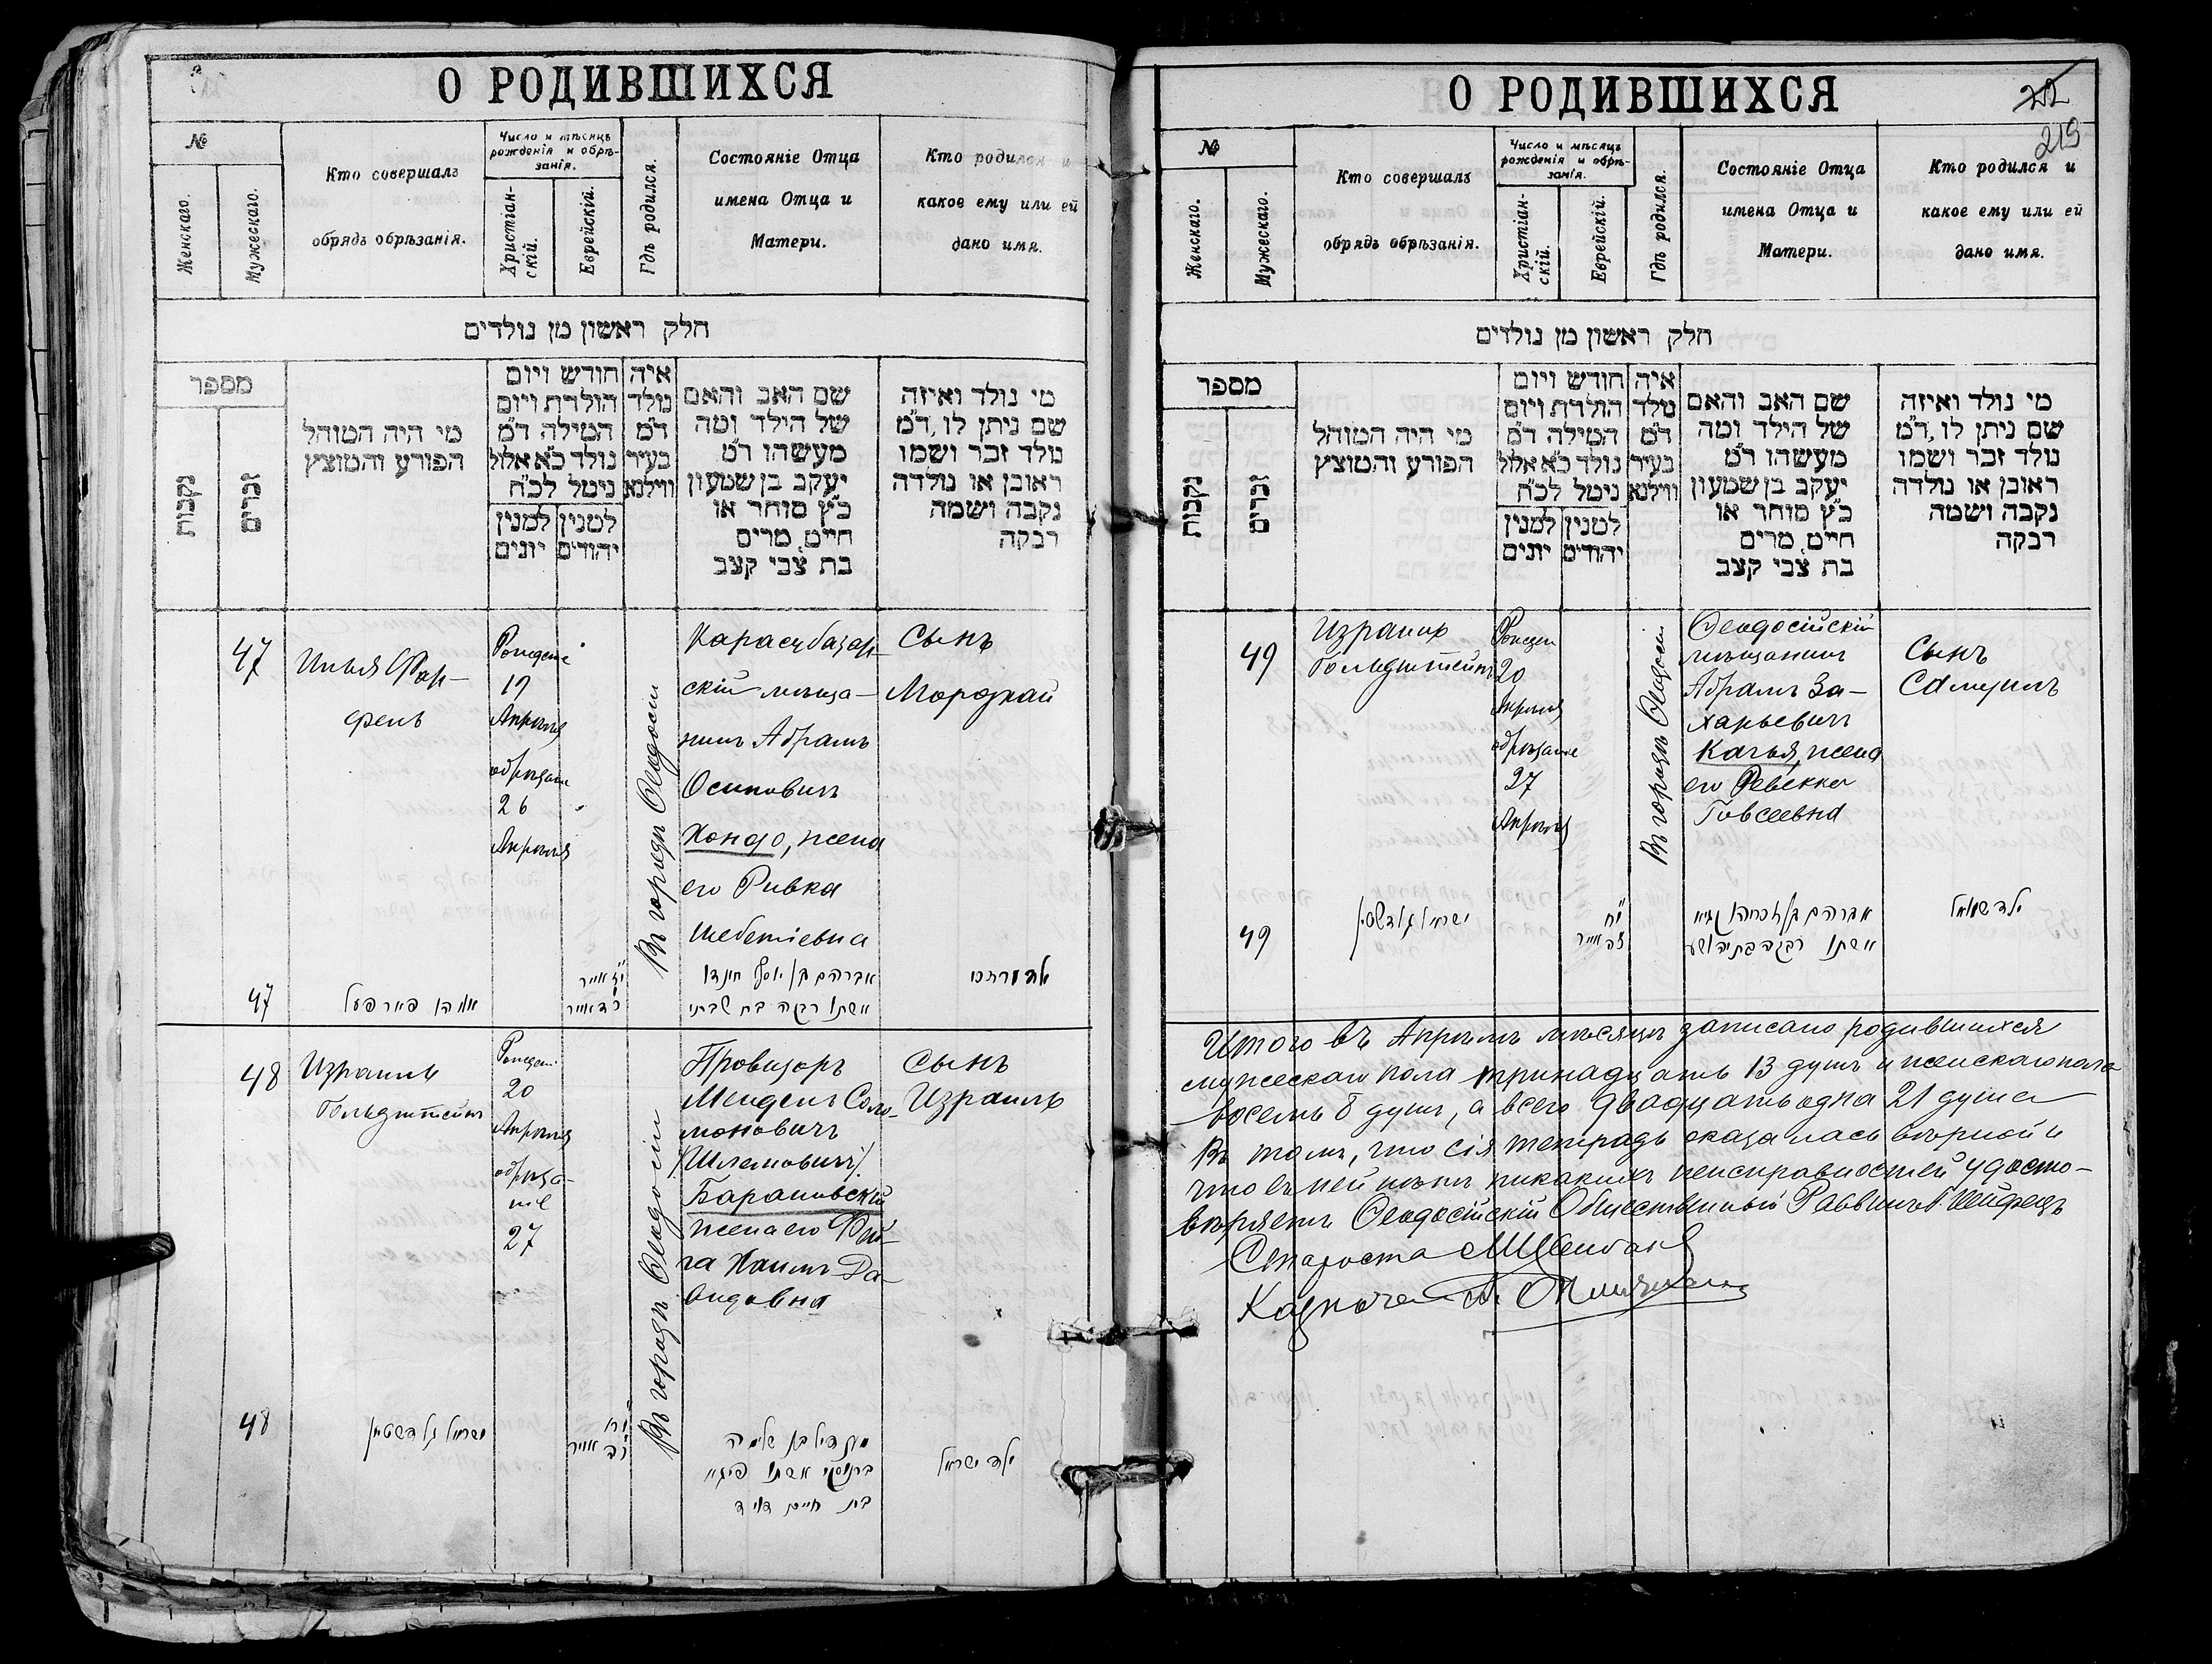 О РОДИВШИХСЯ
№
Женскаго.
Мужескаго.
Кто совершалъ
обрядъ обрѣзанія.
Число и мѣсяцъ
рожденія и обрѣ-
занія.
Христіан-
скій.
Еврейскій.
Гдѣ родился.
Состояніе Отца
имена Отца и
Матери.
Кто родился и
какое ему или ей
дано имя.
חלק ראשון מן נולדים
מספר
נקבות
זכרים
מי היה המוהל
הפורע והמוצץ
חודש ויום
הולדת ויום
המילה ד"מ
נולד כ"א אלול
נימל לכ"ח
למנין
יונים
למנין
יהודים
איה
נולד
ד"מ
בעיר
ווילנא
שם האב והאם
של הילד ומה
מעשהו ר"מ
יעקב בן שמעון
כ"ץ סוחר או
חייט, מרים
בת צבי קצב
מי נולד ואיזה
שם ניתן לו, ד"מ
נולד זכר ושמו
ראובן או נולדה
נקבה ושמה
רבקה
47
Илья Фар-
фель
19
Апрѣля
обрѣзаніе
26
Апрѣля
Въ городѣ Ѳеодосіи
Карасубазар-
скій мѣща-
нинъ Абрамъ
Осиповичъ
Хондо, жена
его Ривка
Шебетіевна
Сынъ
Мордхай
47
אברהם בן יוסף חונדו
אשתו רבקה בת שבתי
48
Израиль
Гольдштейнъ
20
Апрѣля
обрѣза-
ніе
27
Въ городѣ Ѳеодосіи
Провизоръ
Мендель Соло-
моновичъ
(Шлемовичъ)
Барановскій
жена его Фей-
га Хаимъ-Да-
видовна
Сынъ
Израиль
48
ישראל גולדשטיין
מענדיל בן שלמה
אשתו פייגא
בת חיים דוד
ילד ישראל
О РОДИВШИХСЯ
219
№
Женскаго.
Мужескаго.
Кто совершалъ
обрядъ обрѣзанія.
Число и мѣсяцъ
рожденія и обрѣ-
занія.
Христіан-
скій.
Еврейскій.
Гдѣ родился.
Состояніе Отца
имена Отца и
Матери.
Кто родился и
какое ему или ей
дано имя.
חלק ראשון מן נולדים
מספר
נקבות
זכרים
מי היה המוהל
הפורע והמוצץ
חודש ויום
הולדת ויום
המילה ד"מ
נולד כ"א אלול
נימל לכ"ח
למנין
יונים
למנין
יהודים
איה
נולד
ד"מ
בעיר
ווילנא
שם האב והאם
של הילד ומה
מעשהו ר"מ
יעקב בן שמעון
כ"ץ סוחר או
חייט, מרים
בת צבי קצב
מי נולד ואיזה
שם ניתן לו, ד"מ
נולד זכר ושמו
ראובן או נולדה
נקבה ושמה
רבקה
49
Израиль
Гольдштейнъ
20
Апрѣля
обрѣзаніе
27
Апрѣля
Въ городѣ Ѳеодосіи
Ѳеодосійскій
мѣщанинъ
Абрамъ За-
харьевичъ
Качья, жена
его Ревекка
Іовсеевна
Сынъ
Самуилъ
49
ישראל גולדשטיין
ילד שמואל
Итого въ Апрѣлѣ мѣсяцѣ записано родившихся
мужескаго пола тринадцать 13 душъ и женскаго пола
восемь 8 душъ, а всего двадцать одна 21 душа
Въ томъ, что сія тетрадь оказалась вѣрной и
что въ ней нѣтъ никакихъ неисправностей удосто-
вѣряетъ Ѳеодосійскій Общественный Раввинъ
Староста
Казначей